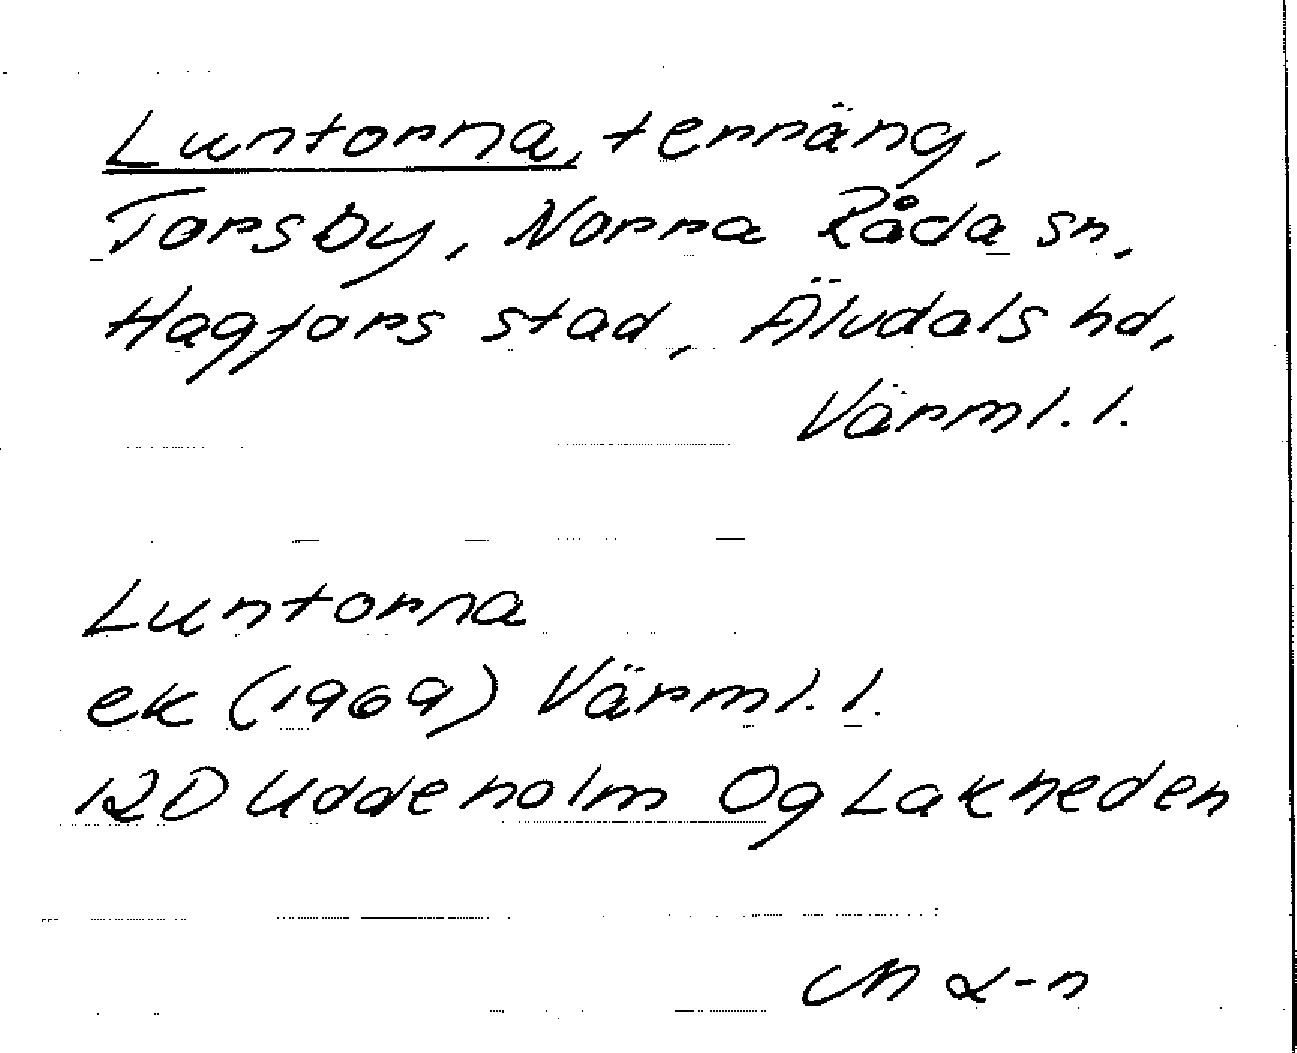 Luntorna, terräng,
Torsby, Norra Råda sn,
Hagfors stad, Älvdals hd,
Värml. l.
Luntorna
ek (1969) Värml. l.
12D Uddeholm Og Lakheden